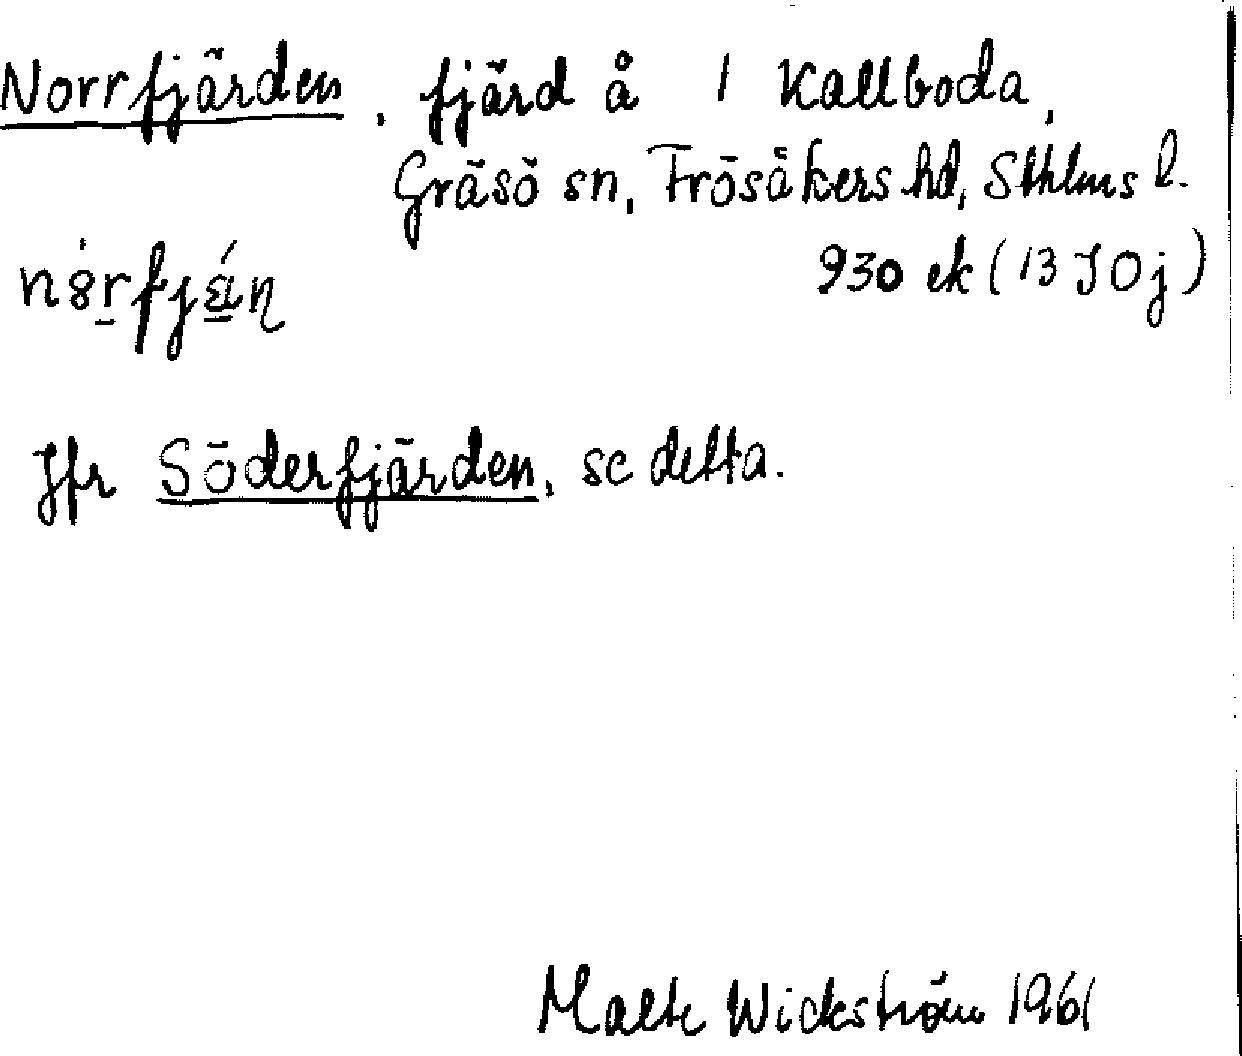 Norrfjärden, fjärd å 1 Kallboda,
Gräsö sn, Frösåkers hd, Sthlms l.
930 ek (13 I 0 j)
Jfr Söderfjärden, se detta.
Malte Wickström 1961